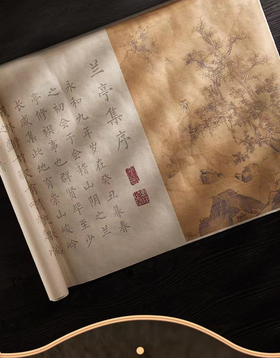 兰亭集序
永和九年岁在癸丑暮春
之初会于会稽山阴之兰
亭修禊事也群贤毕至少
长咸集此地有崇山峻岭